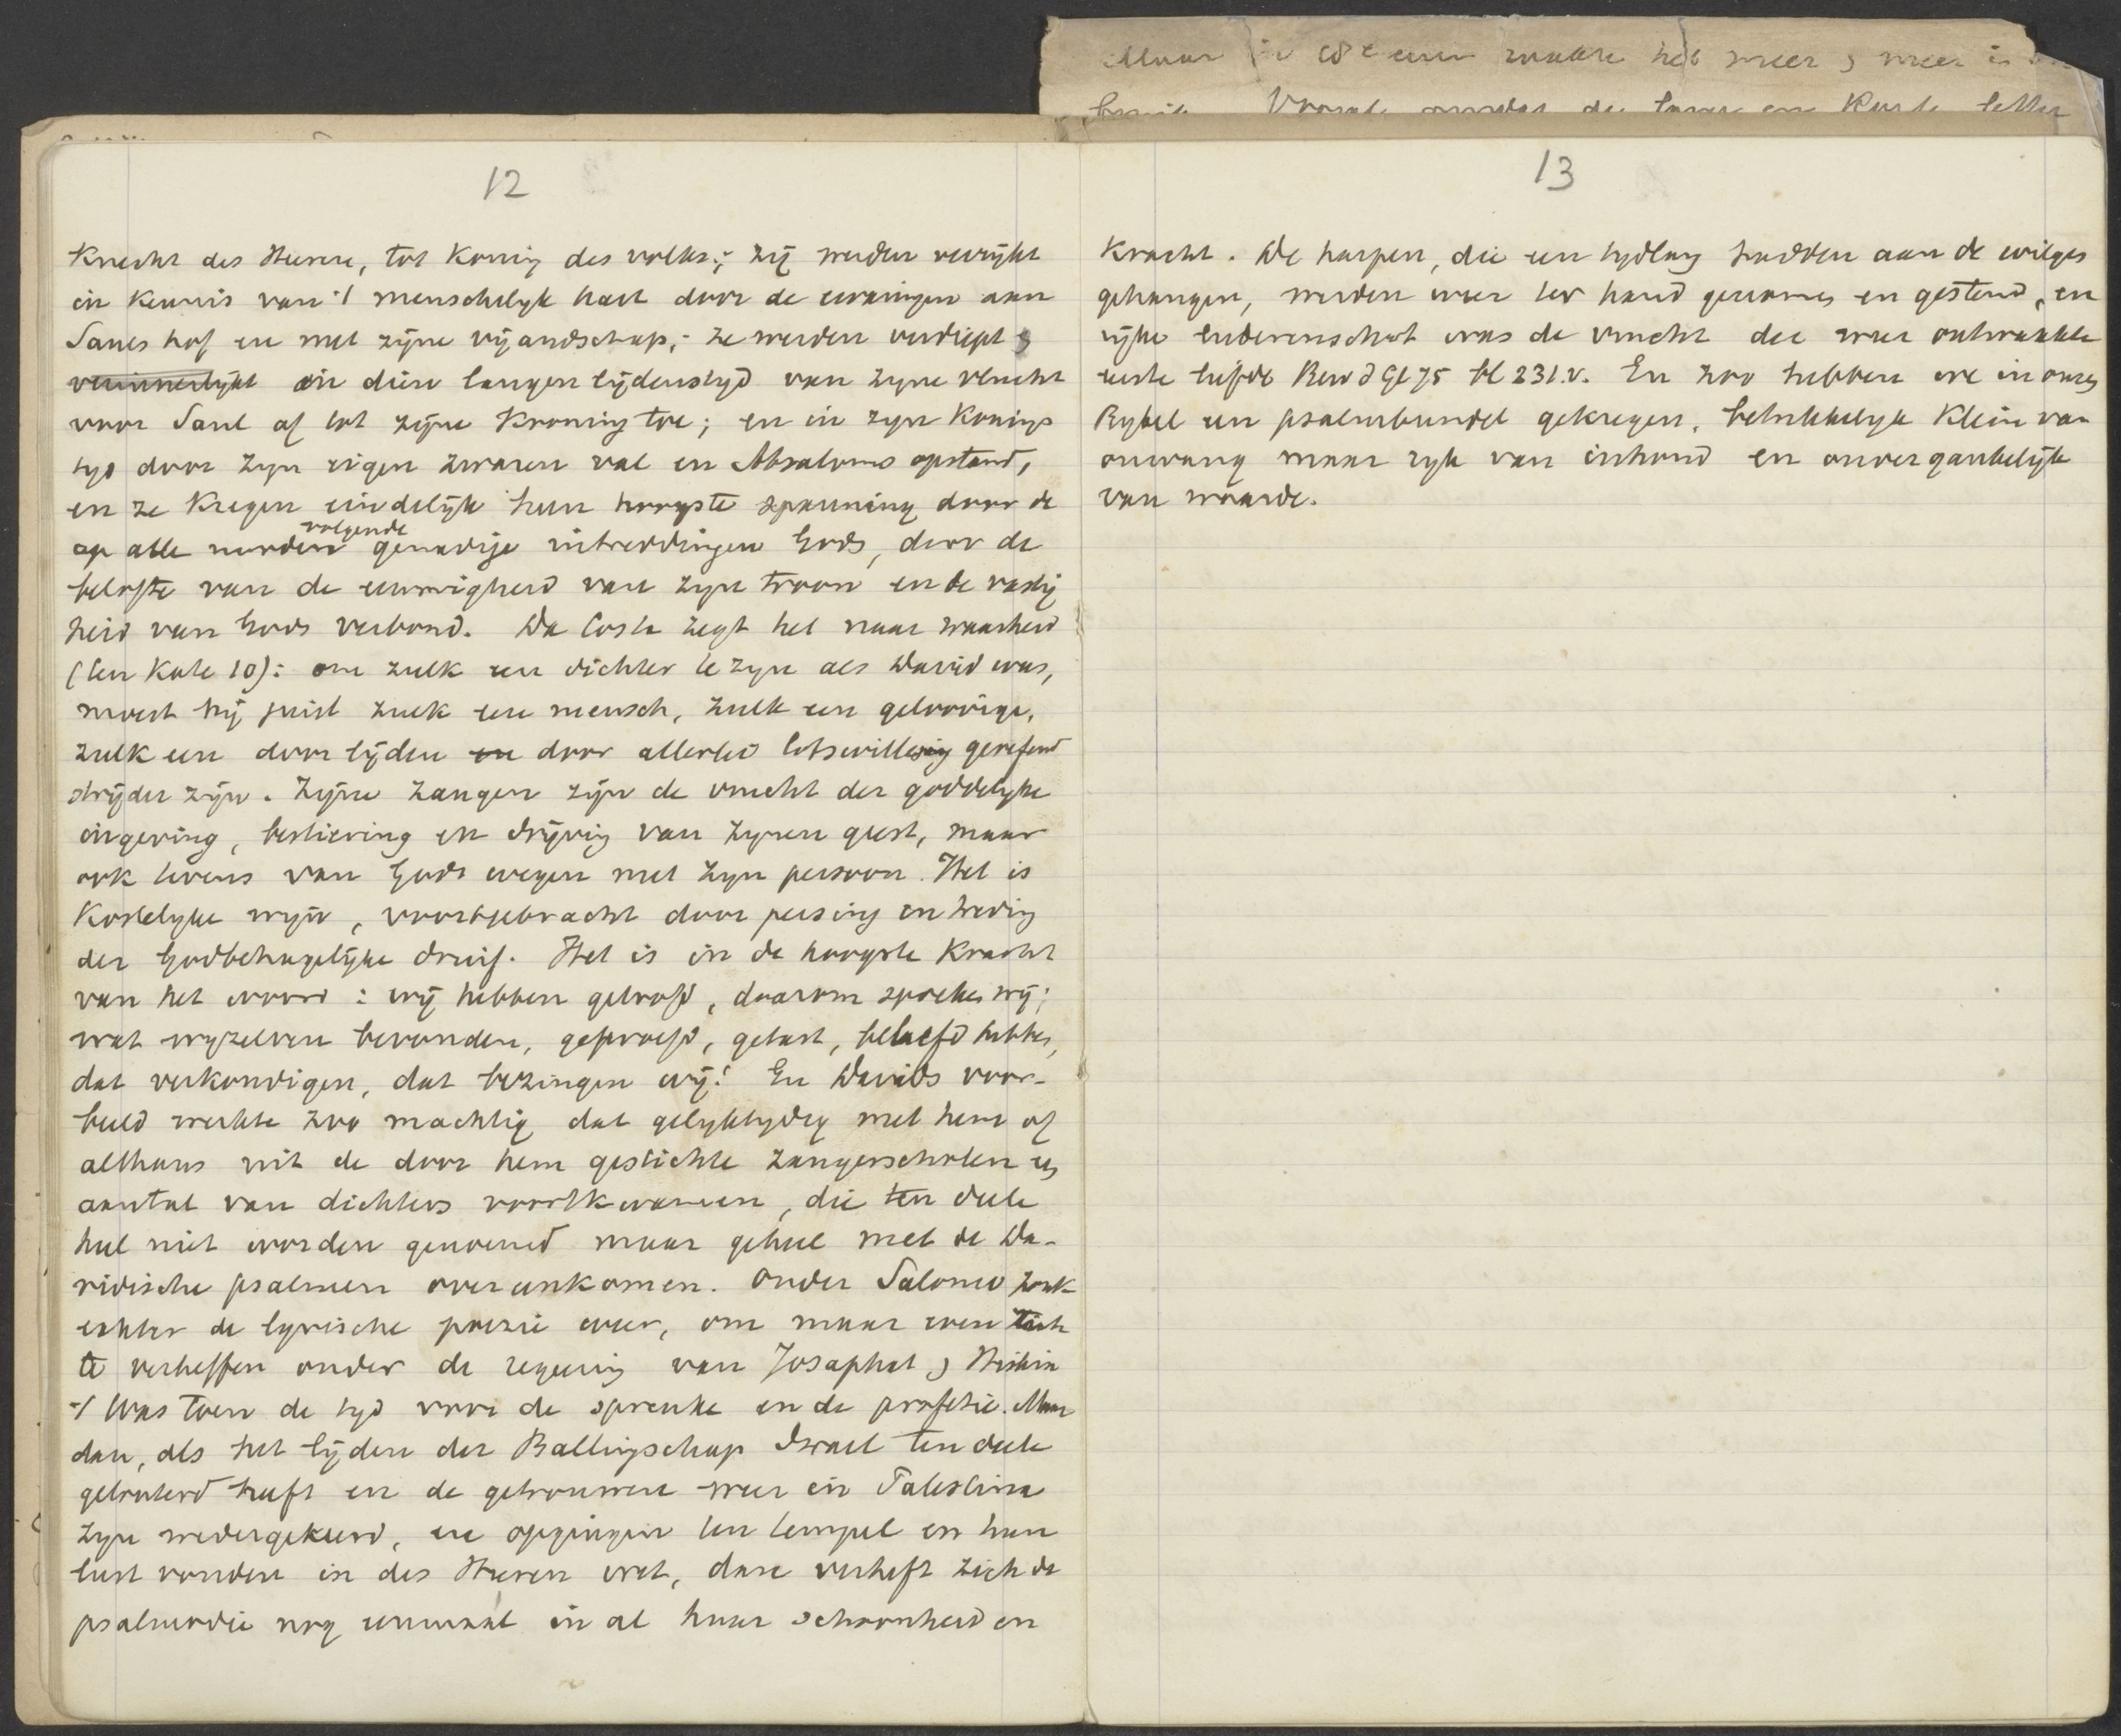 Maar in
12
Knecht des Heeren, tot Koning des volks; zij werden verrijkt
in kennis van 't menschelijk hart door de ervaringen aan
Sauls hof en met zijne vijandschap; ze werden verdiept &
verinnerlijkt in dien langen lijdenstijd van zijne vlucht
voor Saul af tot zijne Kroning toe; en in zijn Konings
tijd door zijn eigen zwaren val en Absaloms opstand,
en ze kregen eindelijk hun hoogste spanning door de
volgende
op alle nooden genadige uitreddingen Gods, door de
belofte van de eeuwigheid van zijn troon en de vastig
heid van Gods verbond. Da Costa zegt het naar waarheid
(ten Kate 10): om zulk een dichter te zijn als David was,
moest hij juist zulk een mensch, zulk een geloovige,
zulk een door lijden en door allerlei lotswisseling geoefend
strijder zijn. Zijne zangen zijn de vrucht der goddelijke
ingeving, bestiering en drijving van zijnen geest, maar
ook tevens van Gods wegen met zijn persoon. Het is
Kostelijke wijn, voortgebracht door persing en treding
der Godbehagelijke druif. Het is in de hoogste Kracht
van het woord: wij hebben geloofd, daarom spreken wij;
wat wijzelven bevonden, geproefd, getast, beleefd hebben,
dat verkondigen, dat bezingen wij! En Davids voor-
beeld werkte zoo machtig dat gelijktijdig met hem of
althans uit de door hem gestichte zangerscholen een
aantal van dichters voortkwamen, die ten deele
heel niet worden genoemd maar geheel met de Da-
vidische psalmen overeenkomen. Onder Salomo zonk
echter de lyrische poezie weer, om maar even zich
te verheffen onder de regeering van Josaphat & Hiskia
't Was toen de tijd voor de spreuke en de profetie. Maar
dan, als het lijden der Ballingschap Israel ten deele
gelouterd heeft en de getrouwen weer in Palestina
zijn wedergekeerd, en opgingen ten tempel en hun
lust vonden in des Heeren wet, dan verheft zich de
psalmodie nog eenmaal in al haar schoonheid en
13
Kracht. De harpen, die een tijdlang hadden aan de wilgen
gehangen, werden weer ter hand genomen en gestemd, en
rijke liederenschat was de vrucht der weer ontwaakte
eerste liefde Bew d Gl 75 bl 231.v. En zoo hebben we in onzen
Bijbel een psalmbundel gekregen, betrekkelijk Klein van
omvang maar rijk van inhoud en onvergankelijk
van waarde.